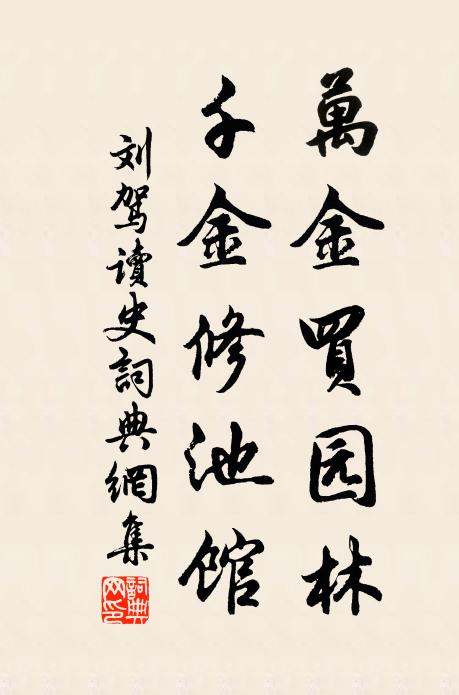 萬金買园林
千金修池馆
刘驾讀史詞典網集
詞典网印